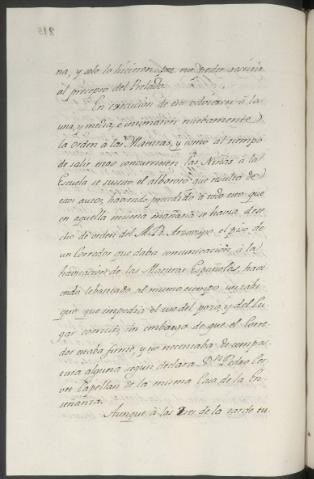 na, y solo lo hicieron por no poder resistir
al precepto del Prelado.
En execucion de este volvieron à la
una, y media, è intimaron nuebamente
la orden à las Maestras, y como al tiempo
de salir estas concurriesen las Niñas à la
Escuela se movio el alboroto que resulta de
estos autos, haviendo precedido à todo esto que
en aquella misma mañana se havia
cho de orden del M. R. Arzobispo, el piso de
un Corredor que daba comunicacion à la
havitacion de las Maestras Españolas, hac
iendo lebantado al mismo tiempo un tabi
que que impedia el uso del pozo, y del Lu
gar comun, sin embargo de que el Corre
dor estaba firme, y no necesitaba de compos
tura alguna segun declara Dn. Pedro
Capellan de la misma Casa de la En
señanza.
Aunque à las tres de la tarde